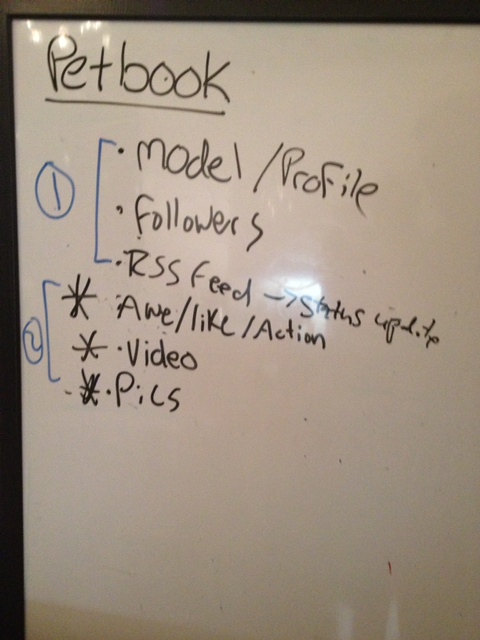 Petbook
① · Model/Profile
· Followers
· RSS Feed → Status update
② * Awe/like/Action
* · Video
* · Pics